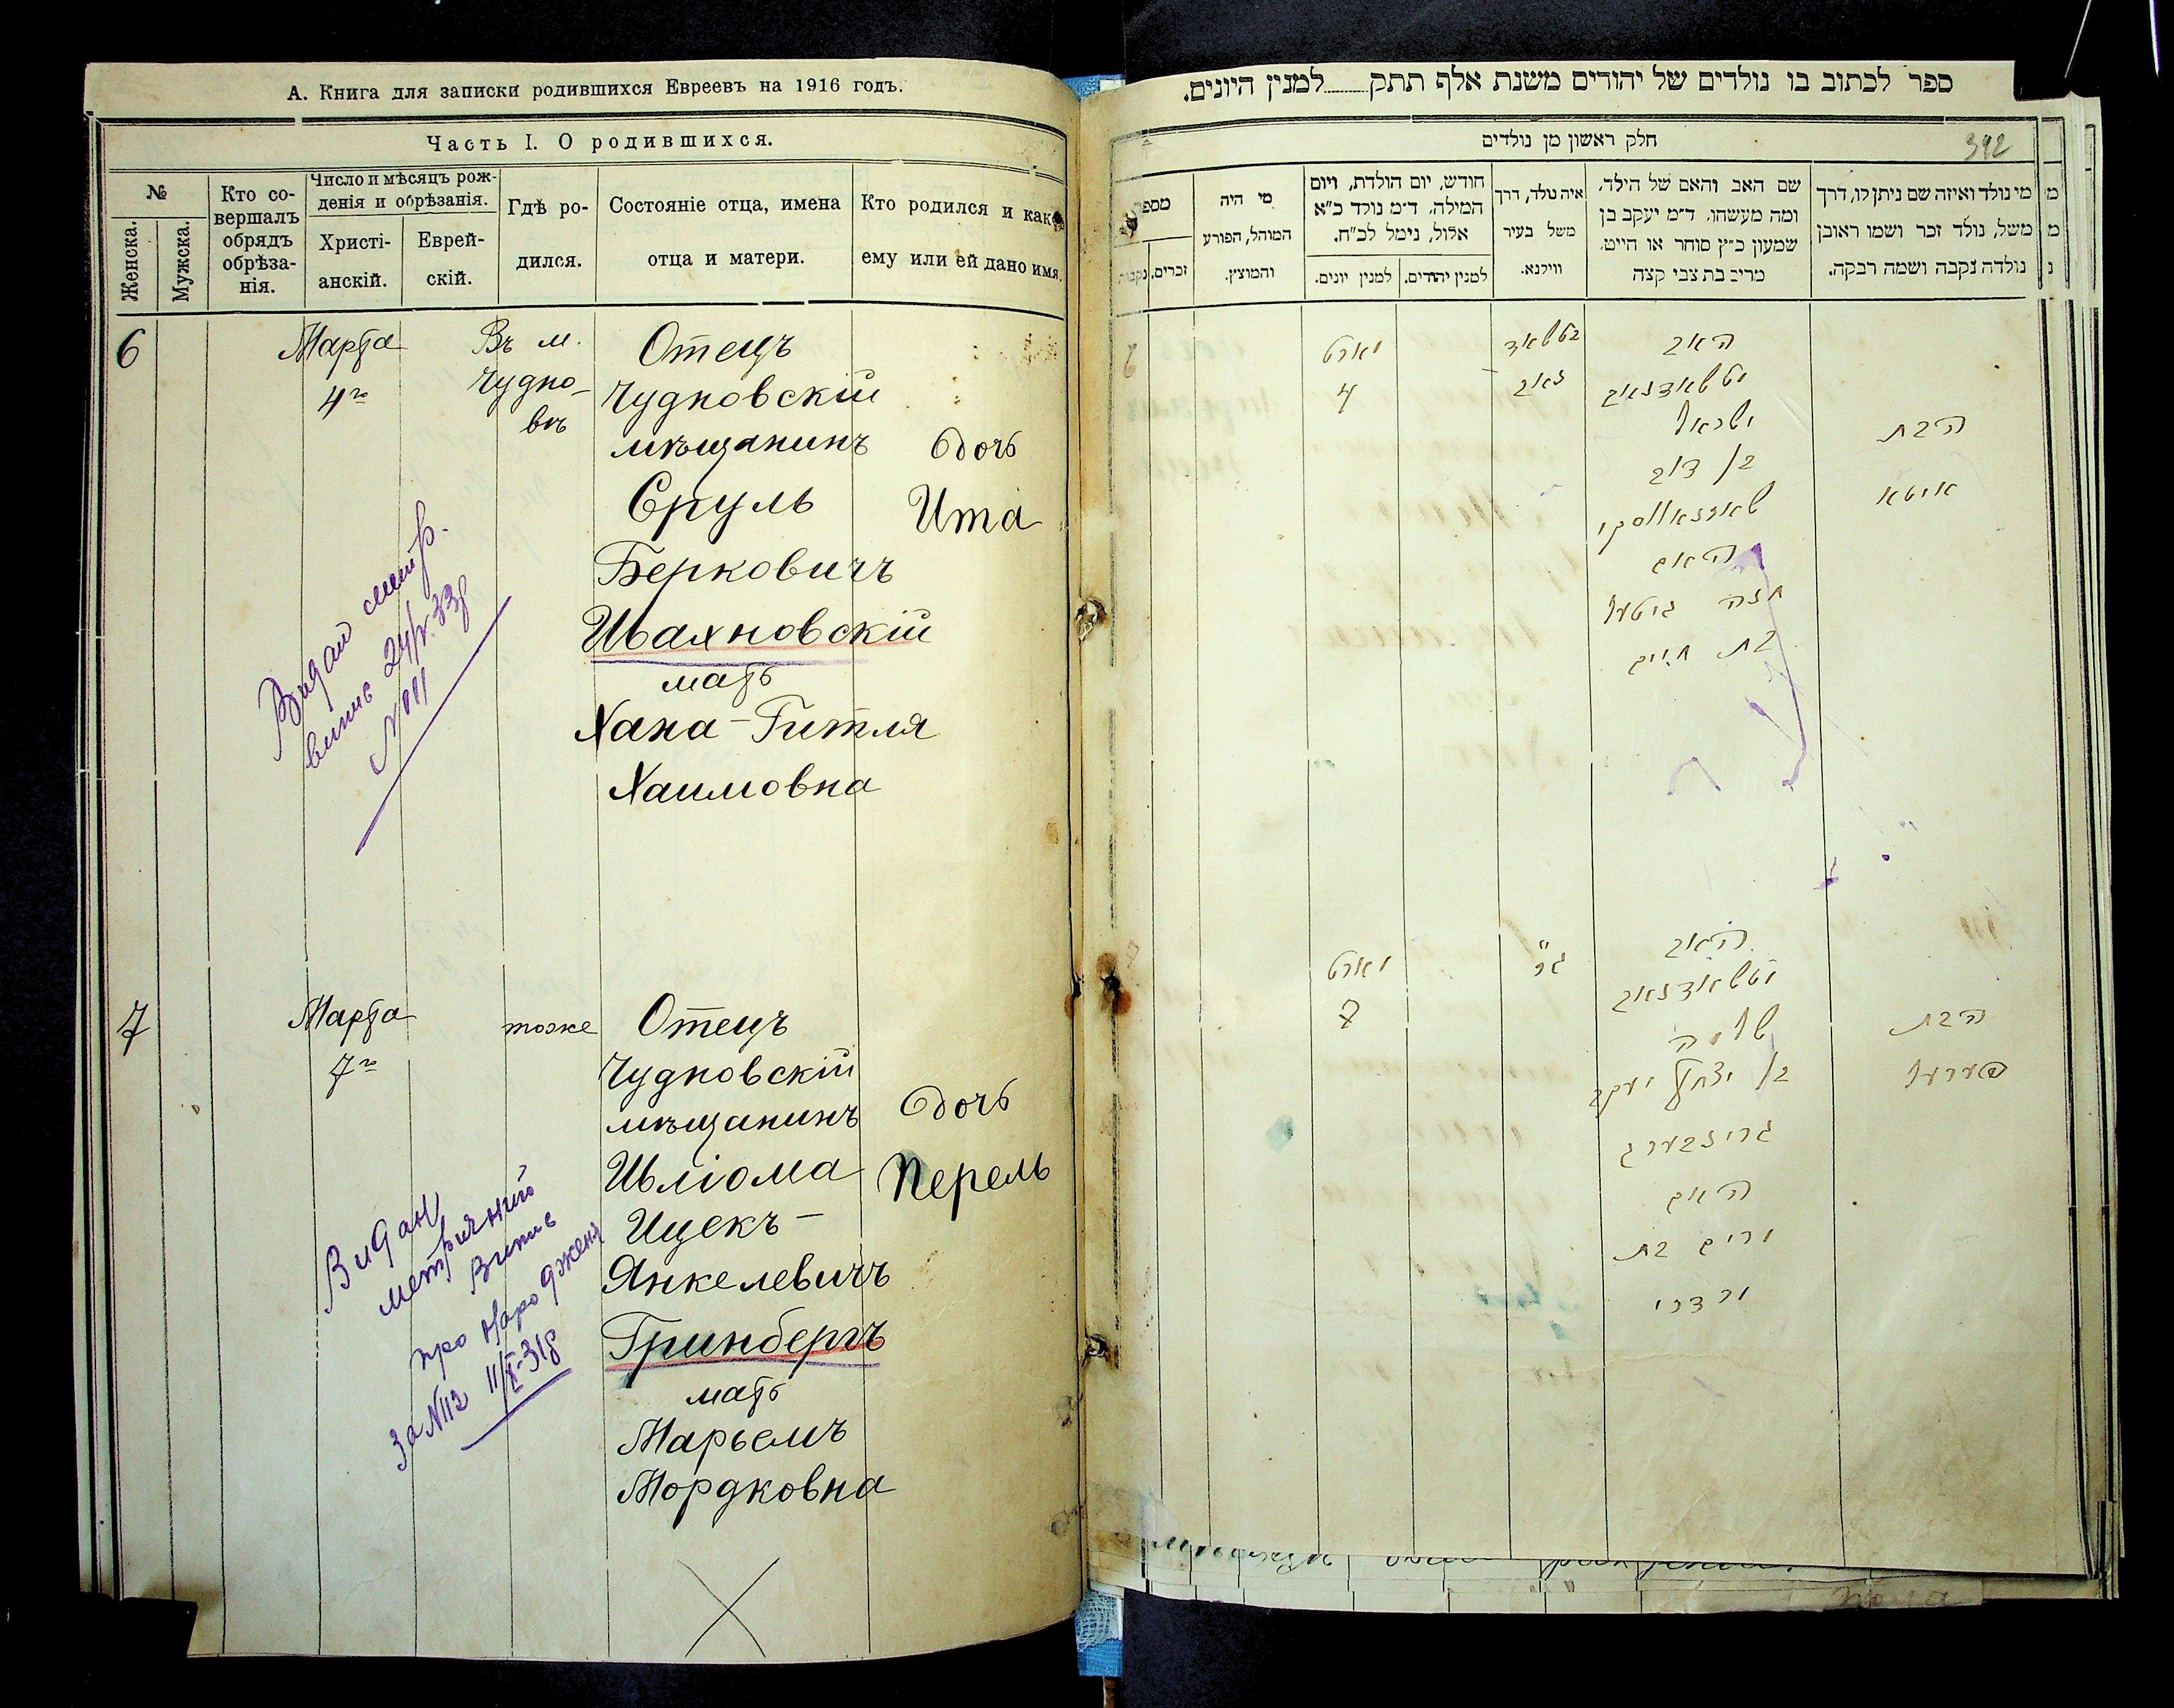 А. Книга для записки родившихся Евреевъ на 1916 годъ.
Часть I. О родившихся.
№
Женска.
Мужска.
Кто со-
вершалъ
обрядъ
обрѣза-
нія.
Число и мѣсяцъ рож-
денія и обрѣзанія.
Христі-
анскій.
Еврей-
скій.
Гдѣ ро-
дился.
Состояніе отца, имена
отца и матери.
Кто родился и како
ему или ей дано имя.
6
Марта
4го
Въ м.
Чудно-
вѣ
Отецъ
Чудновскій
мѣщанинъ
Сруль
Берковичъ
Шваяновскій
мать
Хана-Гитля
Хаимовна
дочь
Ита
Видан метр.
випис 24/V.33р
N 111
7
Марта
7го
тоже
Отецъ
Чудновскій
мѣщанинъ
Шліома
Ицекъ-
Янкелевичъ
Гринбергъ
мать
Марьемъ
Мордковна
дочь
Перель
Видан
метричний
випис
про народження
За N112 11/X-31р
ספר לכתוב בו נולדים של יהודים משנת אלף תתק למנין היונים.
חלק ראשון מן נולדים
342
מי נולד ואיזה שם ניתן לו, דרך
משל, נולד זכר ושמו ראובן
נולדה נקבה ושמה רבקה.
שם האב והאם של הילד,
ומה מעשהו. ד״מ יעקב בן
שמעון כ״ץ סוחר או חייט.
מרים בת צבי קצה
איה נולד, דרך
משל בעיר
ווילנא.
חודש, יום הולדת, ויום
המילה. ד״מ נולד כ״א
אלול, נימל לכ״ח.
למנין יהודים.
למנין יונים.
מי היה
המוהל, הפורע
והמוצץ.
מספר
זכרים.
נקבות
מארט
4
האב
ישראל
בן דוב
האם
חנה גיטעל
בת חיים
הבת
איטא
מארט
7
האב
שלמה
בן יצחק יעקב
גרינבערג
האם
מרים בת
מרדכי
הבת
פערעל